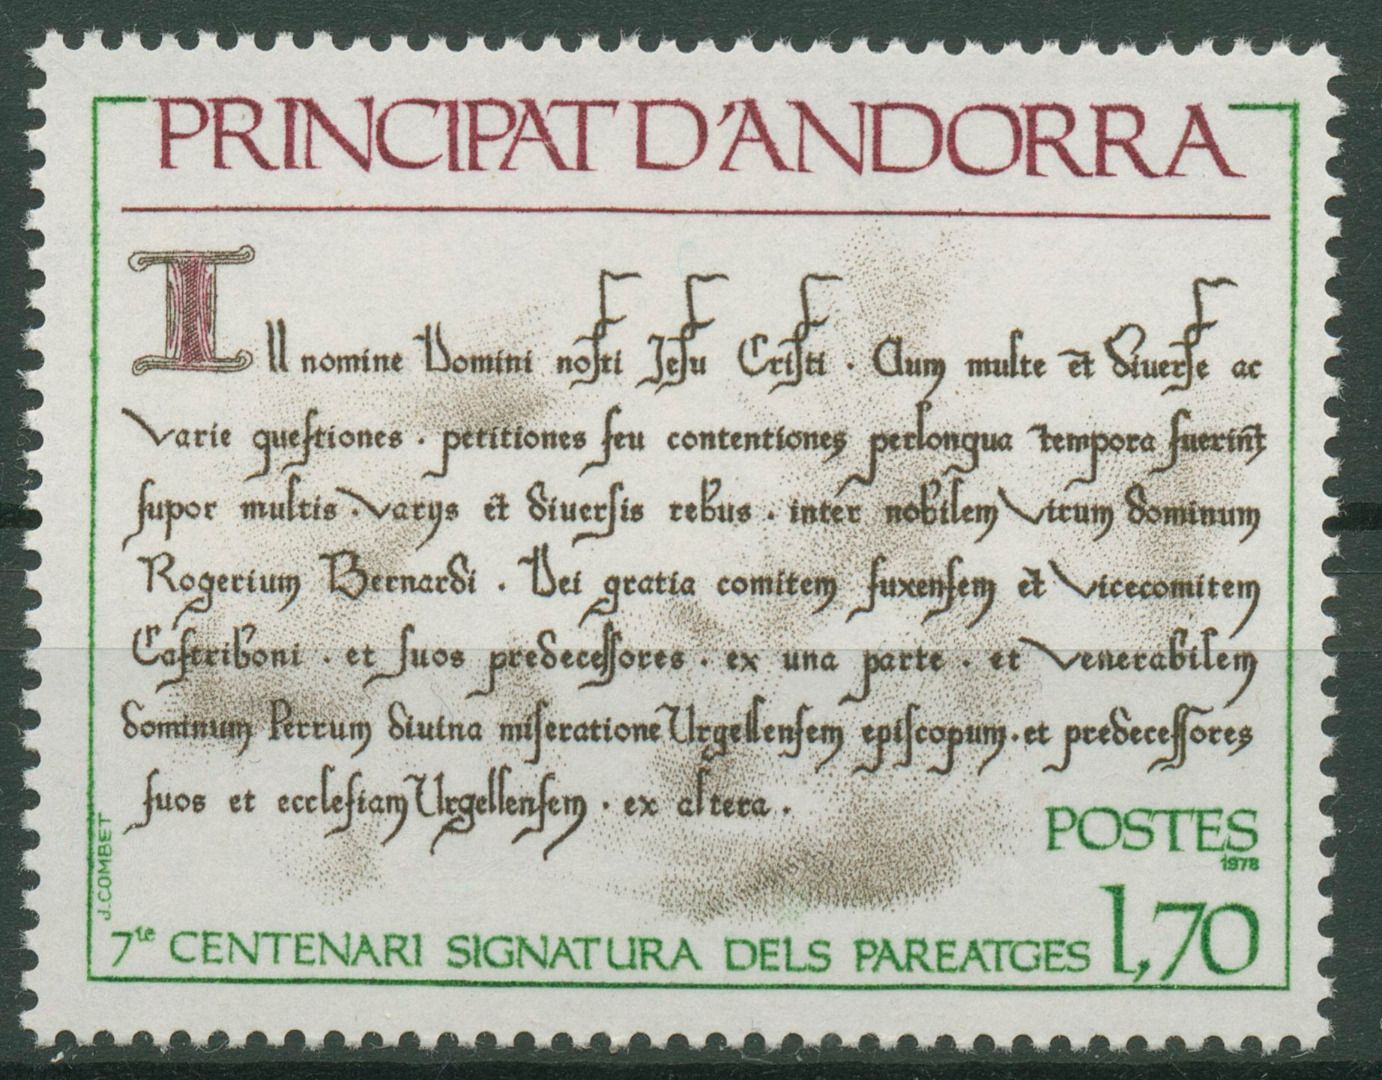 PRINCIPAT D'ANDORRA
IN nomine Domini nostri Jesu Cristi . Cum multe et diuerse ac
Varie questiones . petitiones seu contentiones perlongua tempora fuerint
supor multis . Varys et diuersis rebus . inter nobilem Virum dominum
Rogerium Bernardi . Dei gratia comitem fuxensem et Vicecomitem
Castriboni . et suos predecessores . ex una parte . et Venerabilem
dominum Perrum diuina miseratione Urgellensem episcopum . et predecessores
suos et ecclesiam Urgellensem . ex altera .
POSTES
1978
J. COMBET
7te CENTENARI SIGNATURA DELS PAREATGES 1,70